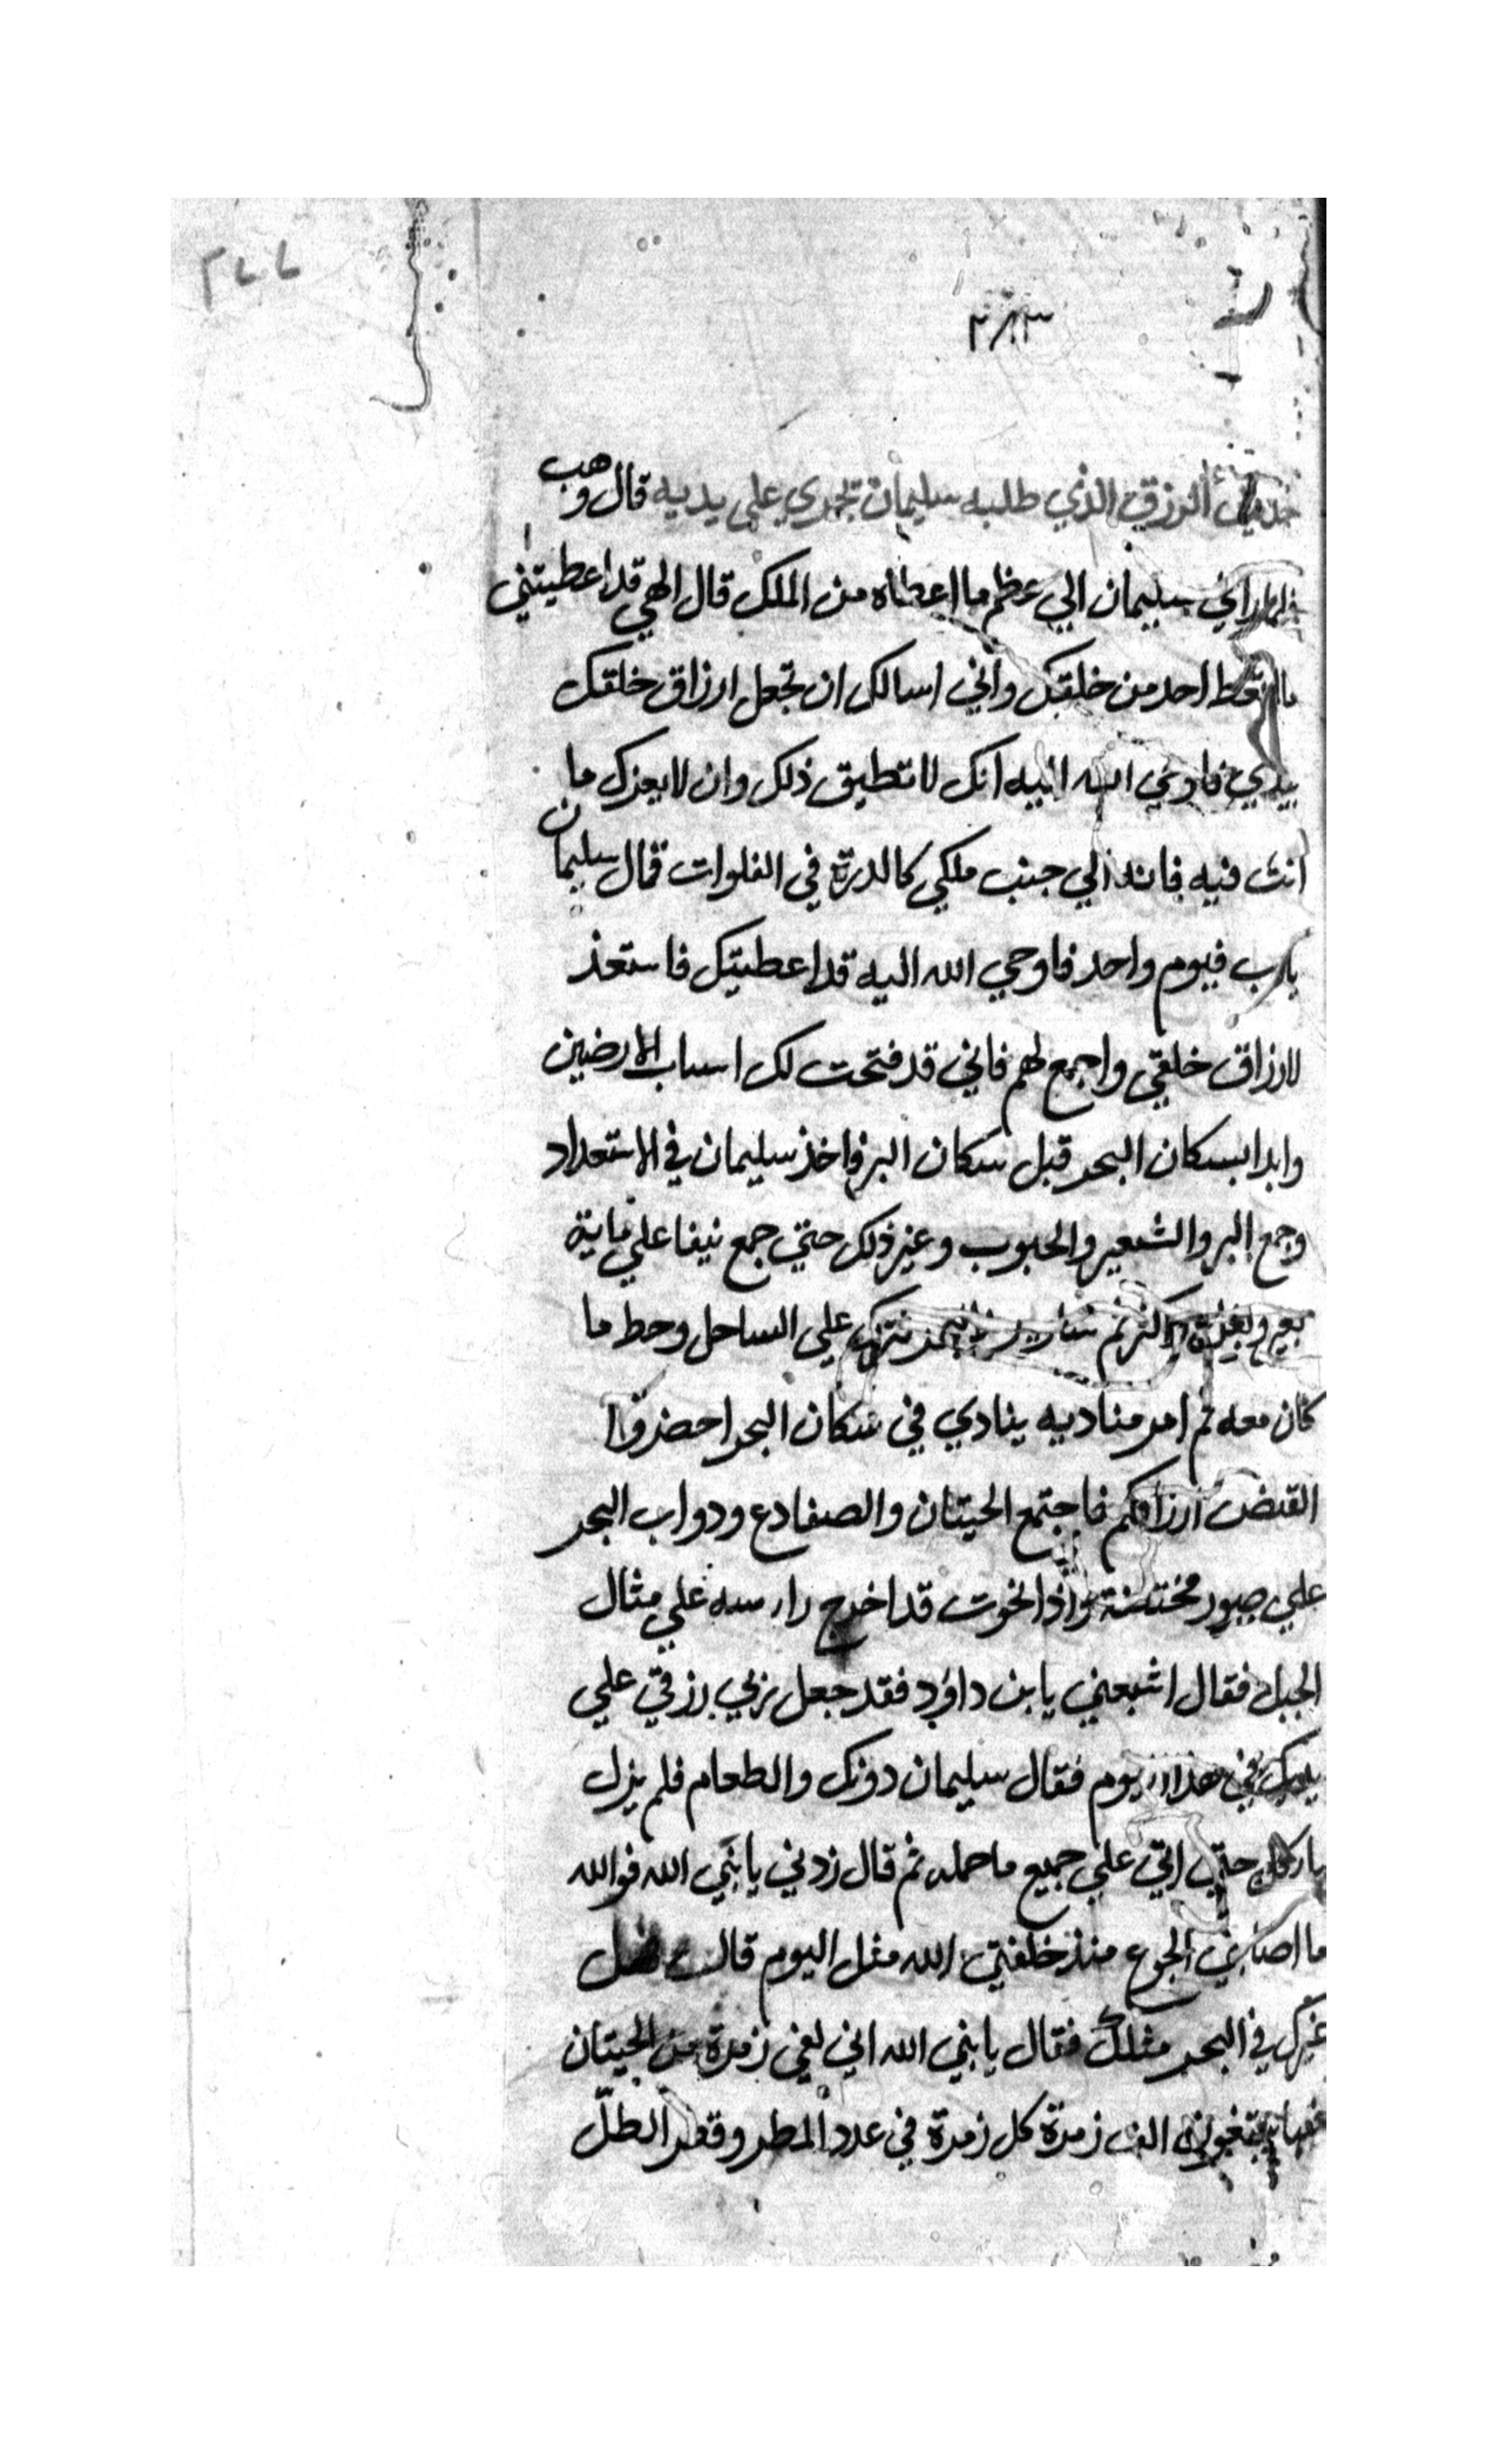 ٢٨٣
حديث الرزق الذي طلبه سليمان تجري علي يديه قال وهب
فلما راي سليمان الي عظم ما اعطاه من الملك قال الهي قد اعطيتني
مالم تعط احد من خلقك واني اسالك ان تجعل ارزاق خلقك
بيدي فاوحي الله اليه انك لا تطيق ذلك وان لا يغرك ما
انت فيه فانه الي جنب ملكي كالدرة في الفلوات فقال سليمان
يارب فيوم واحد فاوحي الله اليه قد اعطيتك فاستعد
لارزاق خلقي واجمع لهم فاني قد فتحت لك اسباب الارضين
وابدا بسكان البحر قبل سكان البر فاخذ سليمان في الاستعداد
وجمع البر والشعير والحبوب وغير ذلك حتي جمع نيفا علي ماية
علي الساحل وحط ما
كان معه ثم امر مناديه ينادي في سكان البحر احضروا
لقبض ارزاقكم فاجتمع الحيتان والضفادع ودواب البحر
علي صور مختلفة واذا بحوت قد اخرج راسه علي مثال
الجبل فقال اشبعني يا بن داؤد فقد جعل ربي رزقي علي
يديك في هذا اليوم فقال سليمان دونك والطعام فلم يزل
ياكل حتي اتي علي جميع ما حمله ثم قال زدني يا نبي الله فوالله
ما اصابني الجوع منذ خلقني الله مثل اليوم قال
غيرك في البحر مثلك فقال يا نبي الله اني لفي زمرة من الحيتان
الف زمرة كل زمرة في عدد المطر وقطر الطلّ